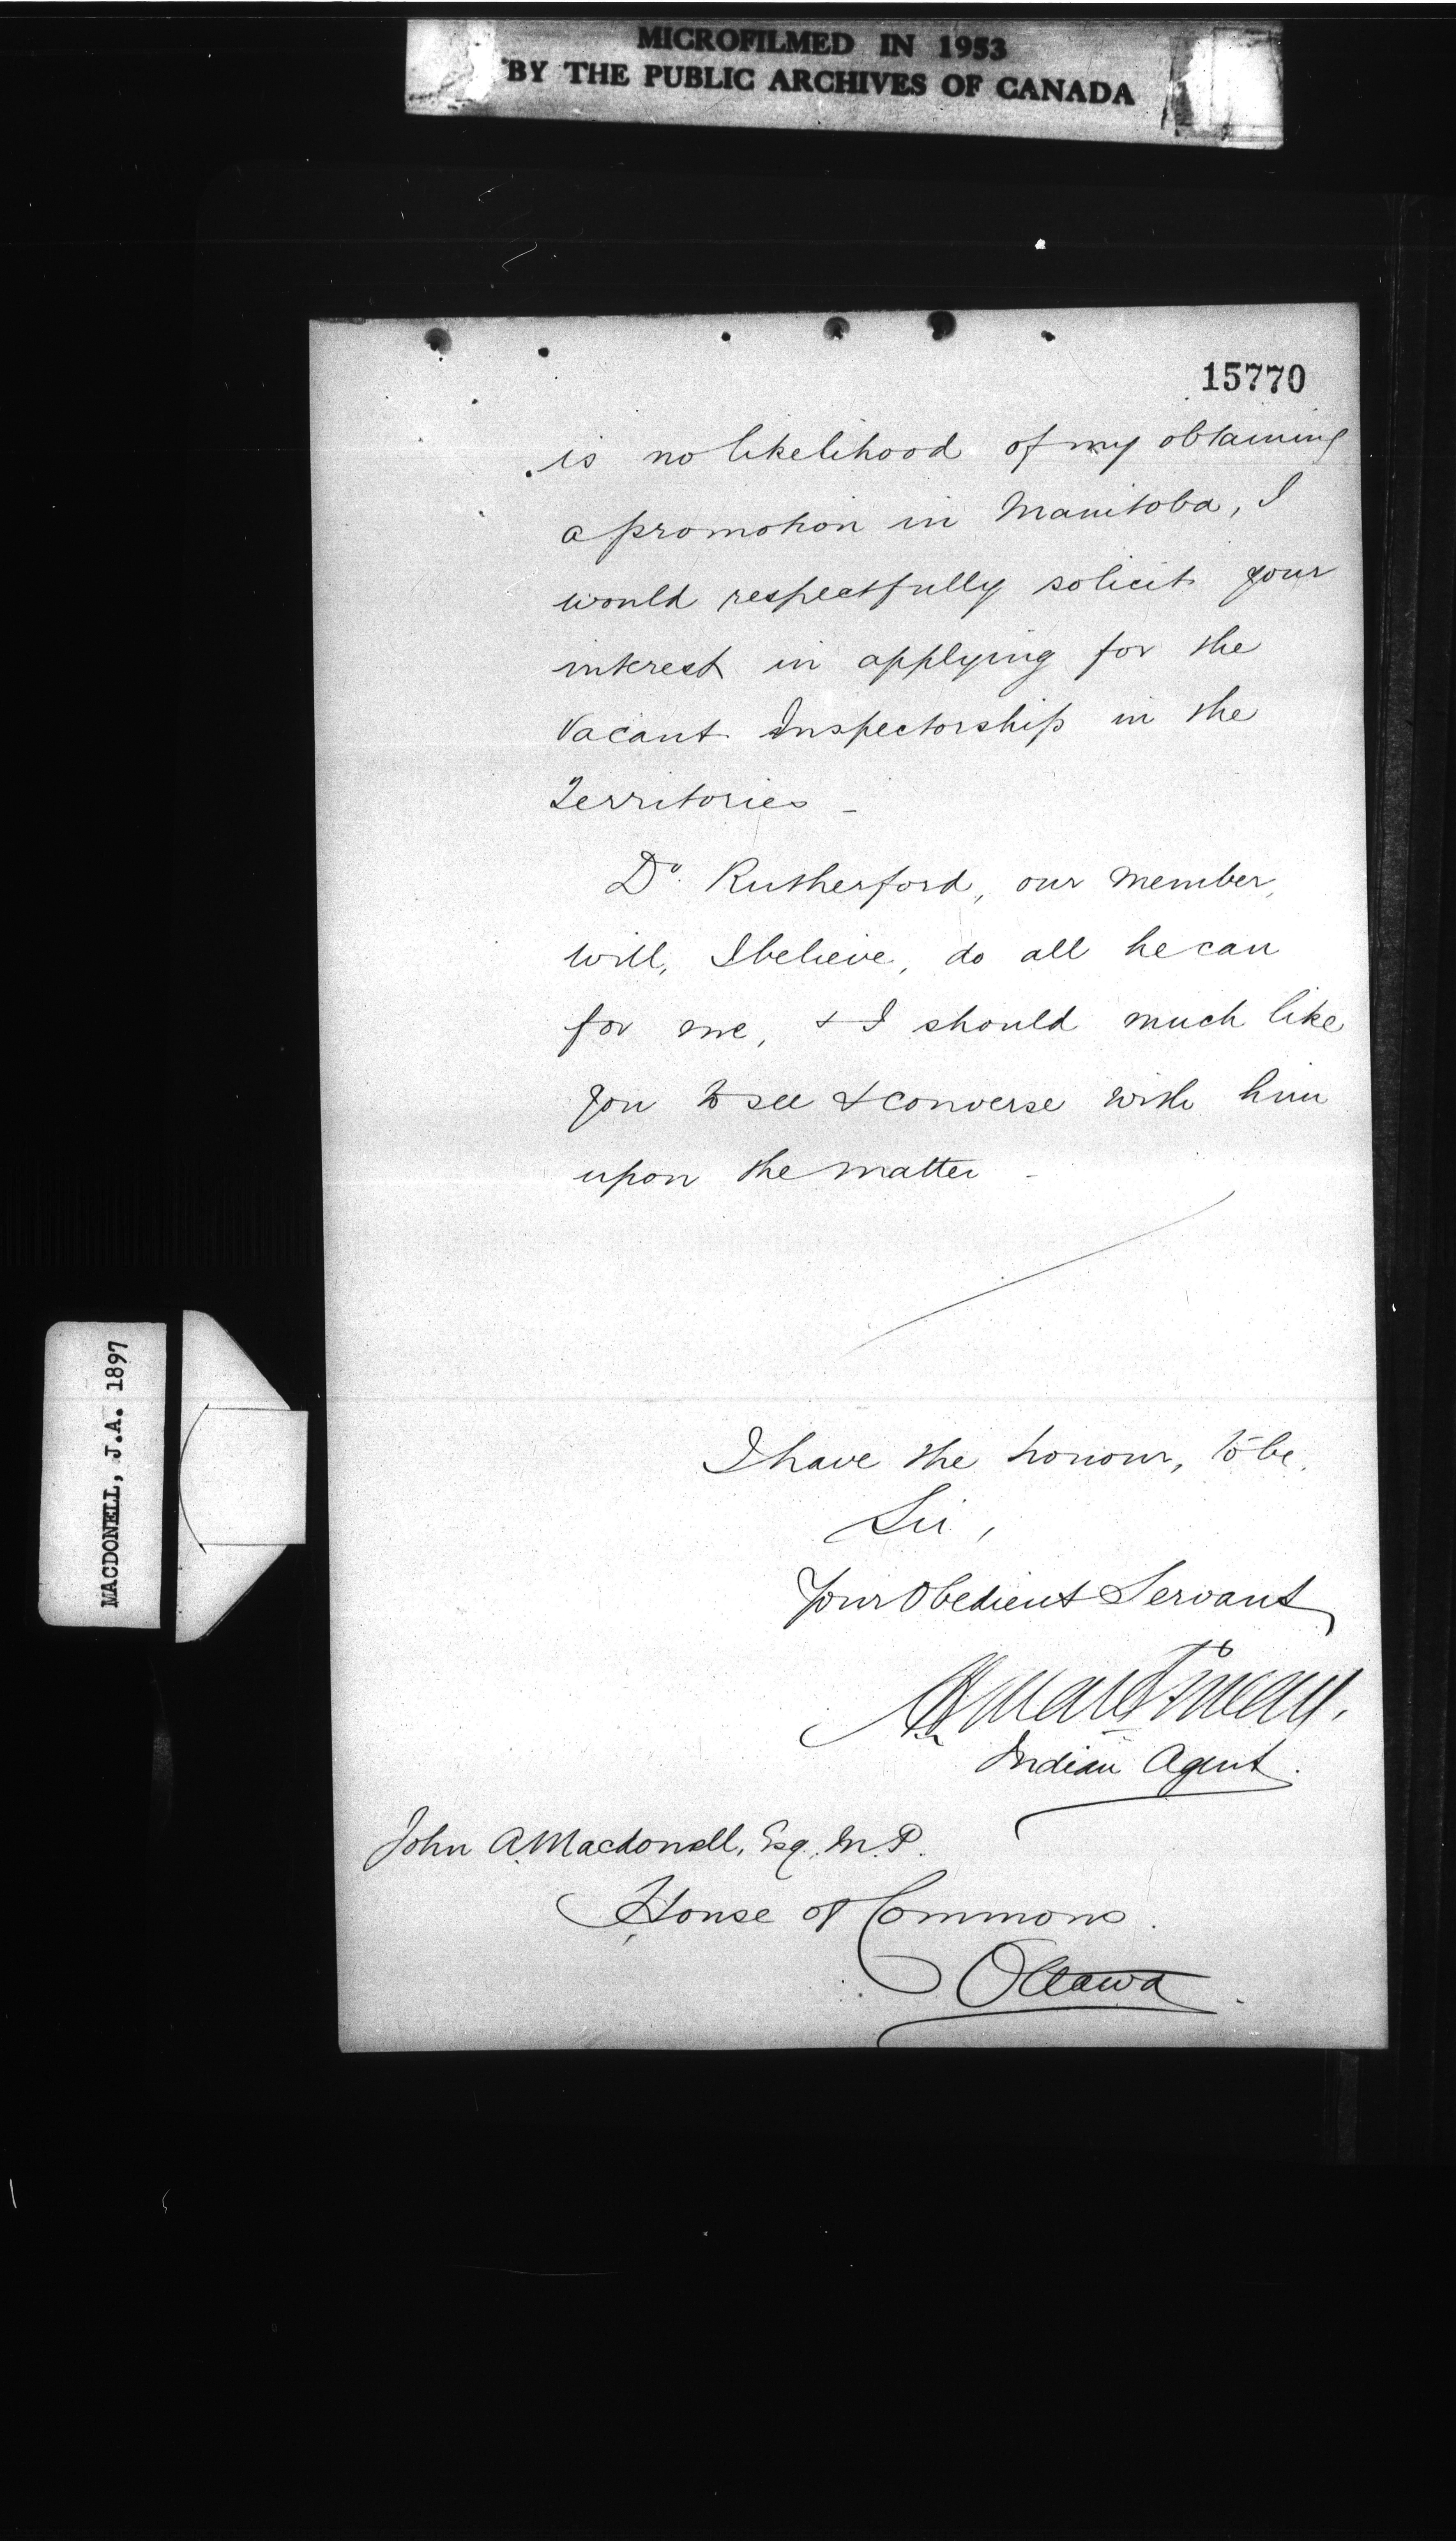 MICROFILMED IN 1953
BY THE PUBLIC ARCHIVES OF CANADA
15770
is no likelihood of my obtaining
a promotion in Manitoba, I
would respectfully solicit your
interest in applying for the
Vacant Inspectorship in the
Territories _
Dr. Rutherford, our member,
will, I believe, do all he can
for me, & I should much like
you to see & converse with him
upon the matter -
I have the honour, to be,
Sir,
Your Obedient Servant
Indian Agent.
John A. Macdonell, Esq. M.P.
House of Commons.
Ottawa.
MACDONELL, J.A. 1897